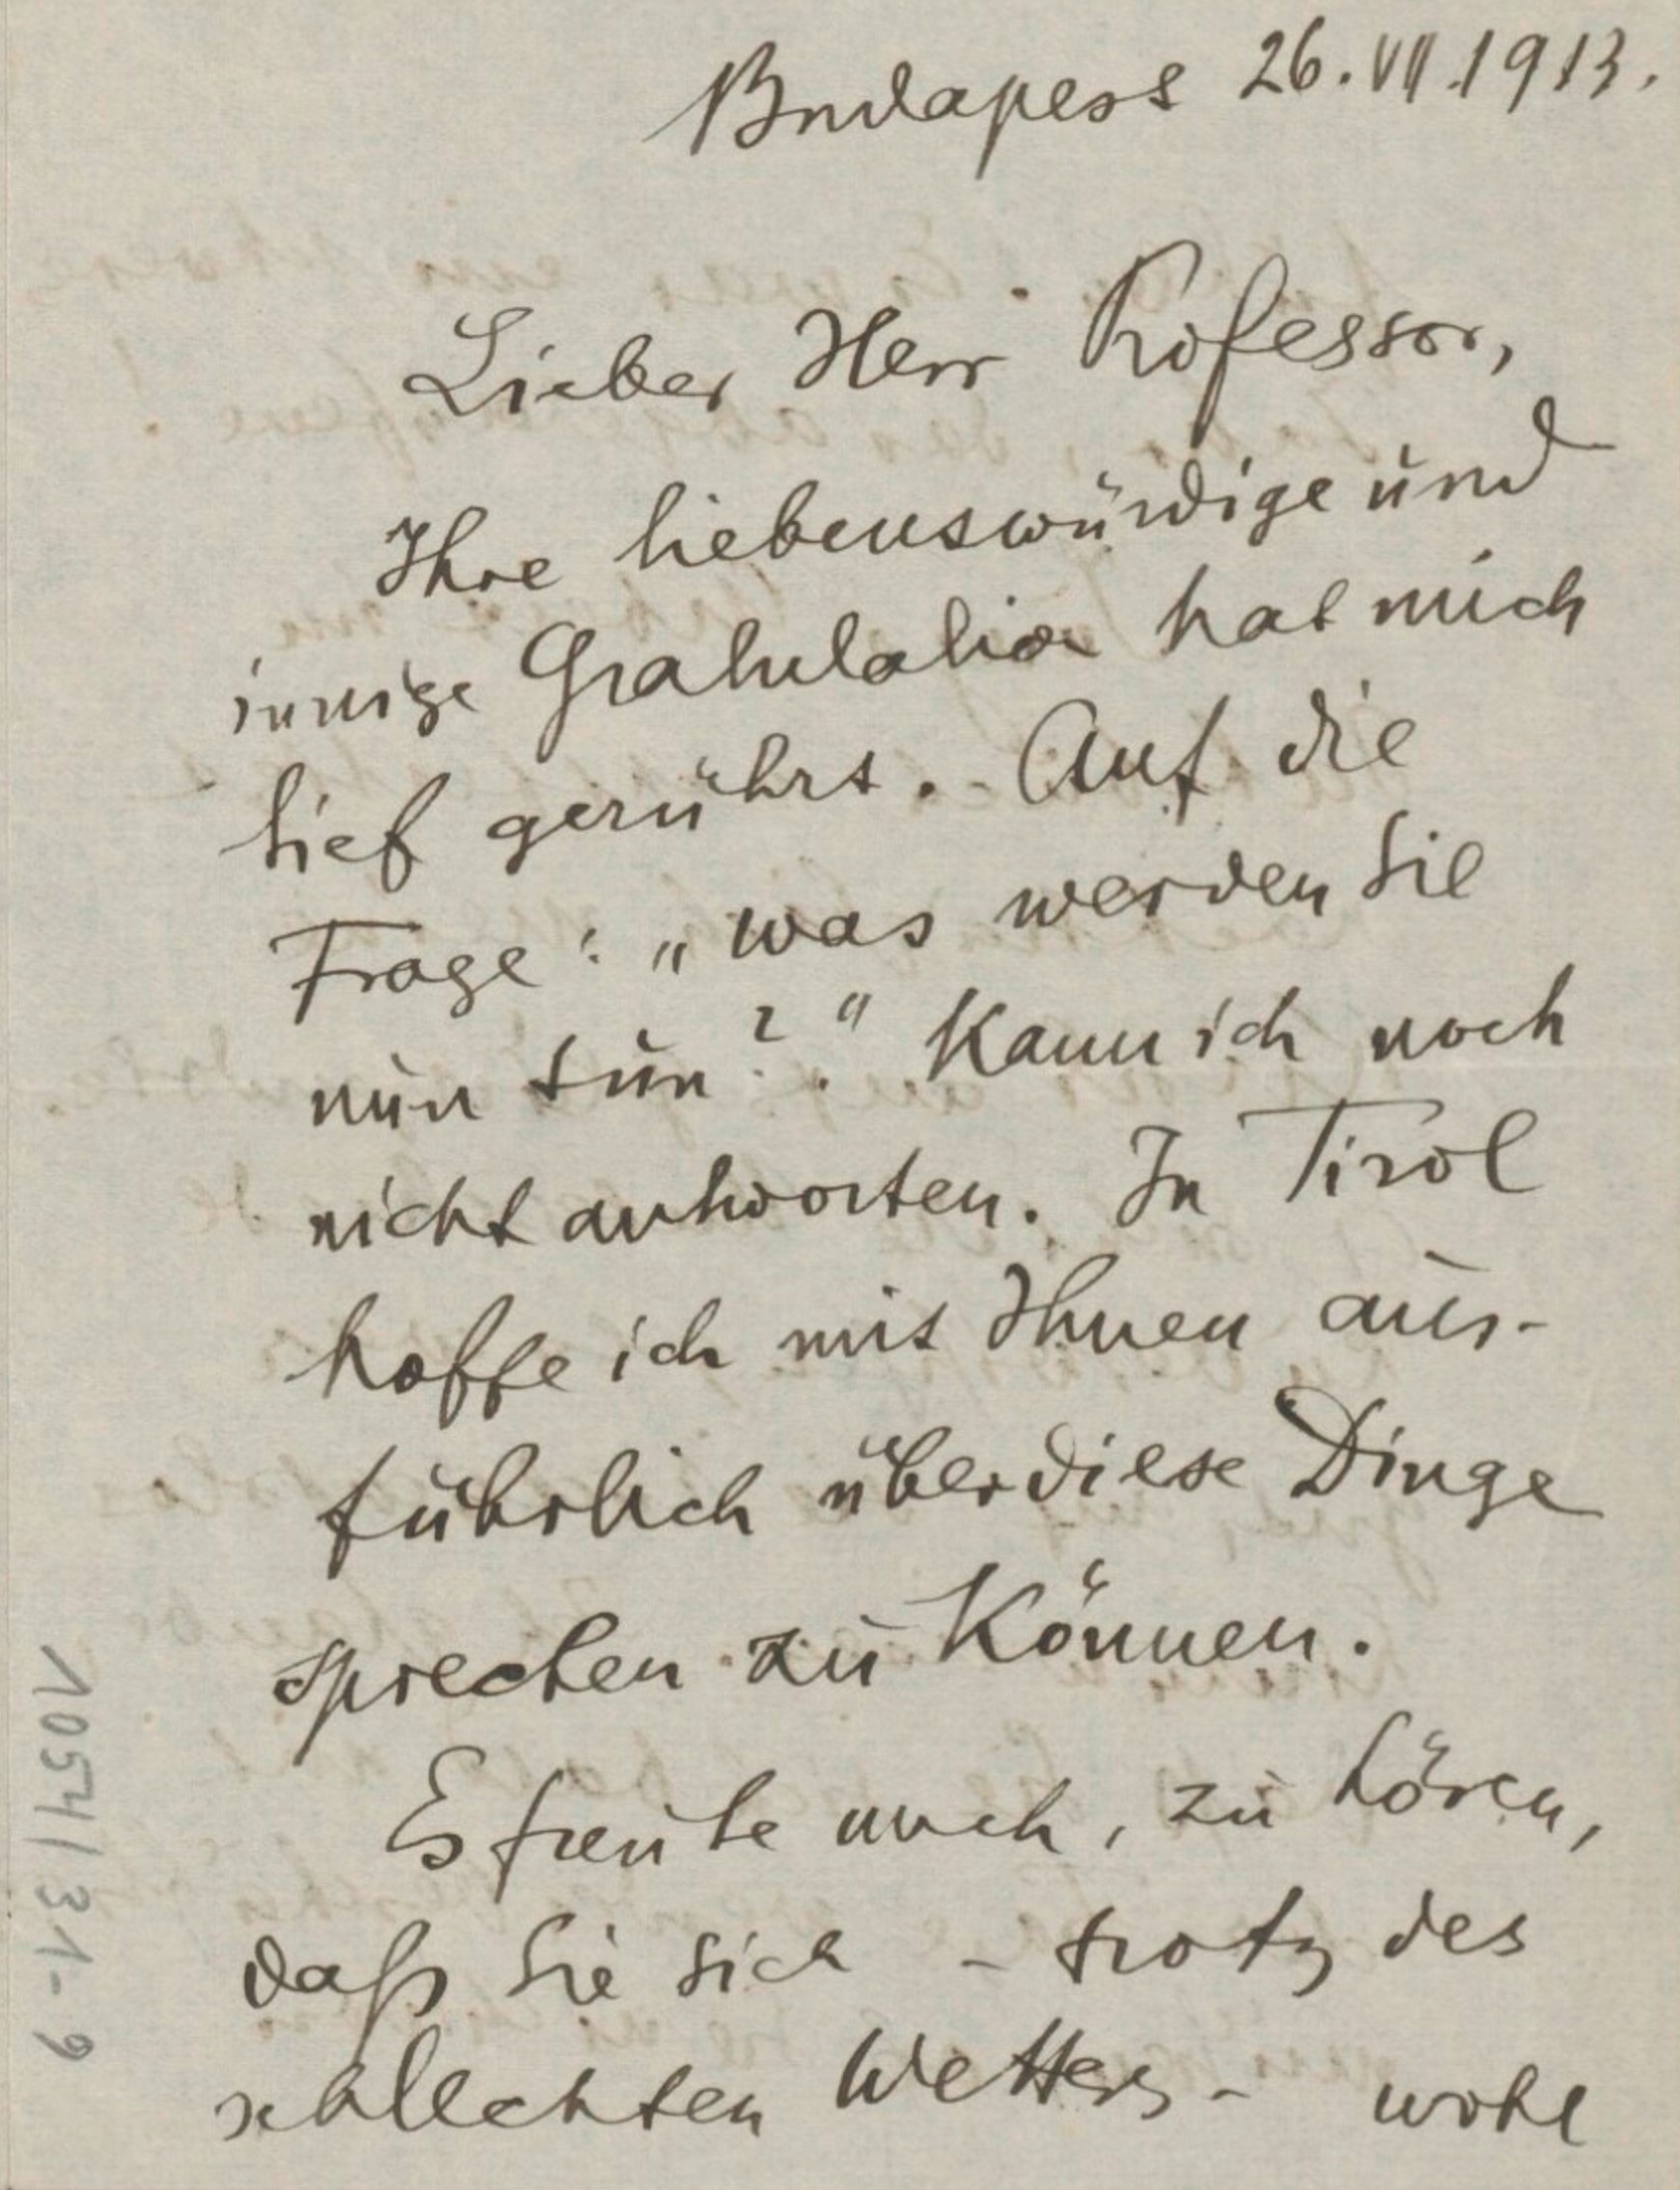 Budapest 26.VII.1913.
Lieber Herr Professor,
Ihre liebenswürdige und
innige Gratulation hat mich
tief gerührt. Auf die
Frage: „was werden Sie
nun tun?" Kann ich noch
nicht antworten. In Tirol
hoffe ich mit Ihnen aus-
führlich über diese Dinge
sprechen zu Können.
Es freute mich, zu hören,
daß Sie sich - trotz des
schlechten Wetters - wohl
1054/31-9